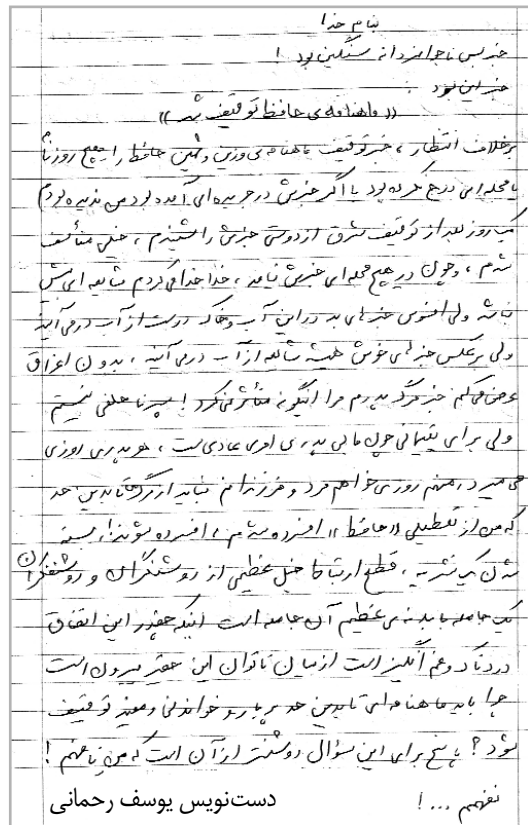 بنام خدا
خبر بس ناجوانمردانه سنگین بود !
خبر این بود :
((ماهنامه‌ی حافظ توقیف شد))
برخلاف انتظار ، خبر توقیف ماهنامه‌ی وزین و ثمین حافظ را هیچ روزنامه
یا مجله‌ای درج نکرده بود یا اگر خبرش در جریده‌ای آمده بود من ندیده بودم)
یک روز بعد از توقیف شرق از دوستی خبرش را شنیدم ، خیلی متأسف
شدم ، و چون در هیچ مجله‌ای خبرش نیامد ، خدا خدا می‌کردم شایعه‌ای بیش
نباشد ولی افسوس خبرهای بد در این آب و خاک درست از آب درمی‌آیند
ولی برعکس خبرهای خوش همیشه شایعه از آب درمی‌آیند ، بدون اغراق
عرض می‌کنم خبر مرگ پدرم مرا اینگونه متأثر نمی‌کرد ! پسر ناخلفی نیستم
ولی برای یتیمانی چون ما بی پدری امری عادی‌ست ، هر پدری روزی
می‌میرد ، منهم روزی خواهم مرد و فرزندانم نباید از مرگ تا بدین حد
که من از تعطیلی ((حافظ)) افسرده شدم ، افسرده شوند ! بسته
شدن یک نشریه ، قطع ارتباط خیل عظیمی از روشنگران و روشنفکران
یک جامعه با بدنه‌ی عظیم آن جامعه است اینکه چقدر این اتفاق
دردناک و غم‌انگیز است از بیان ناتوان این حقیر بیرون است
چرا باید ماهنامه‌ای تا بدین حد پربار و خواندنی و مفید توقیف
شود ؟ پاسخ برای این سؤال روشنتر از آن است که من نافهم !
نفهمم ... !
دست‌نویس یوسف رحمانی